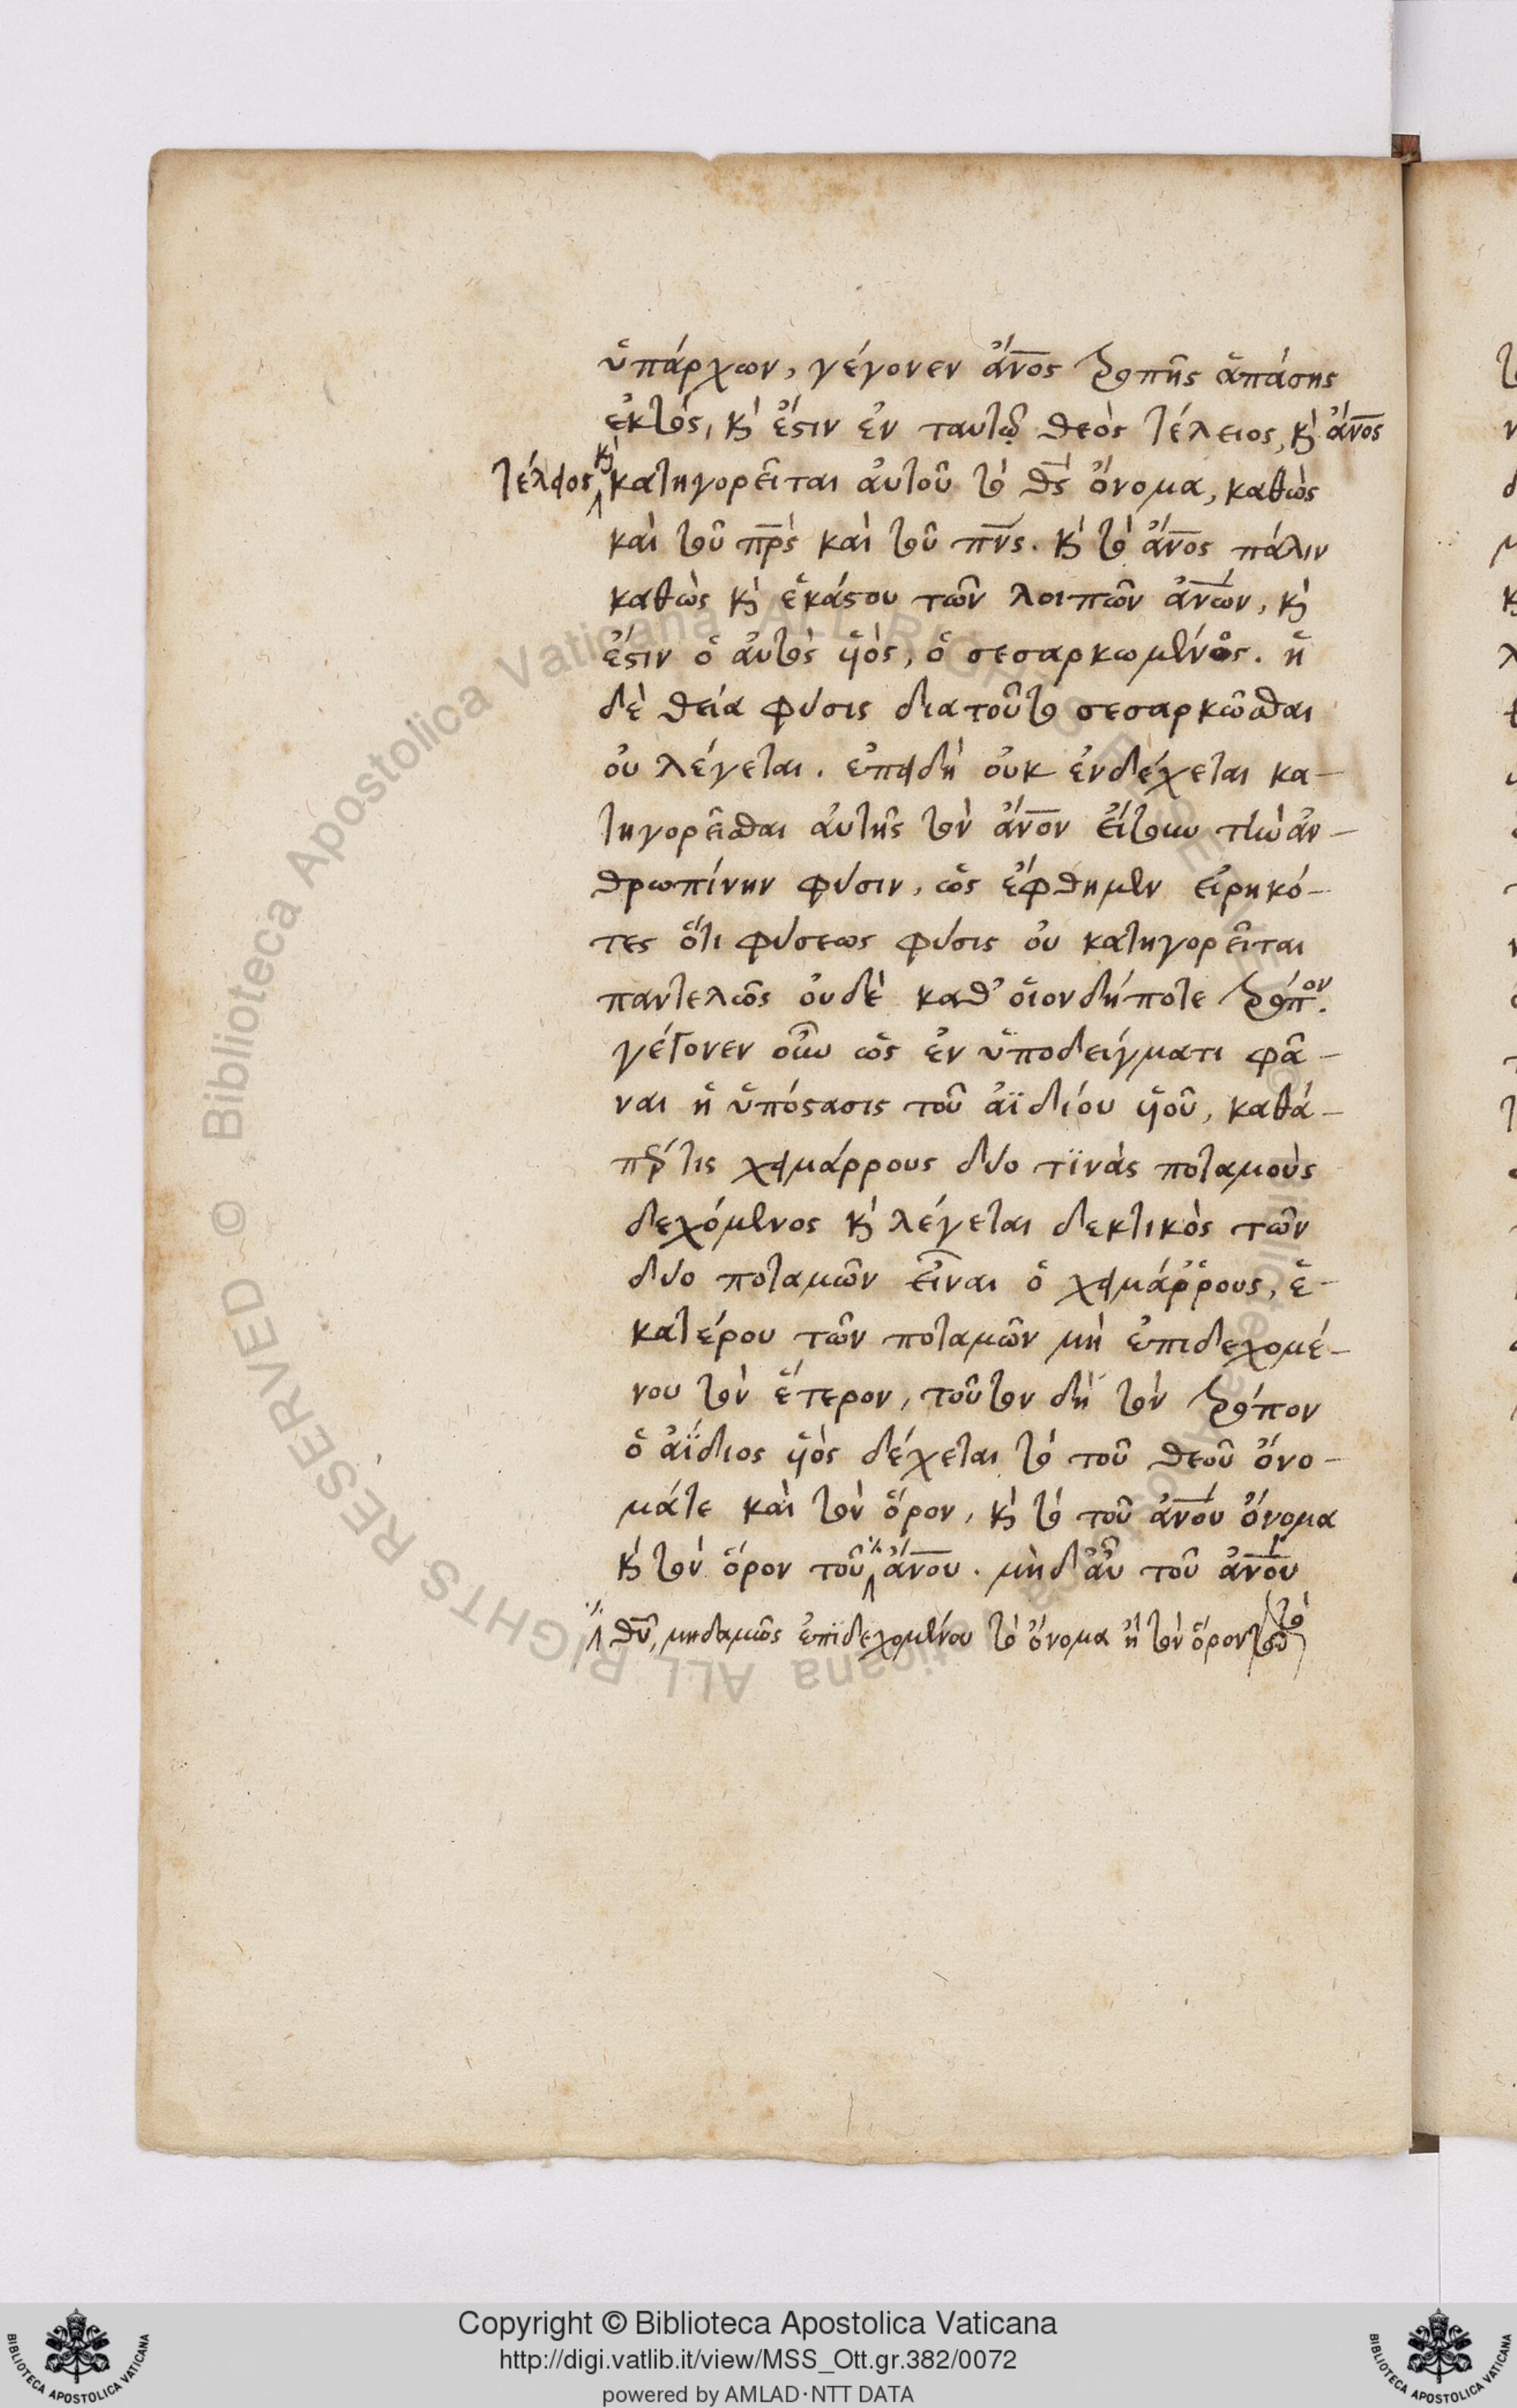 ὑπάρχων, γέγονεν ἄν̅ο̅ς τροπῆς ἁπάσης
ἐκτός, κ̀ ἔστιν ἐν ταυτῷ θεὸς τέλειος, κ̀ ἄν̅ο̅ς
τέλειος κ̀ κατηγορεῖται αὐτοῦ τὸ θ̅ς̅ ὄνομα, καθὼς
καὶ τοῦ π̅ρ̅ς̅ καὶ τοῦ π̅ν̅ς̅. κ̀ τὸ ἄν̅ο̅ς πάλιν
καθὼς κ̀ ἑκάστου τῶν λοιπῶν ἀν̅ω̅ν, κ̀
ἔστιν ὁ αὐτὸς υἱὸς, ὁ σεσαρκωμένος. ἡ
δὲ θεία φύσις διατοῦτο σεσαρκῶσθαι
οὐ λέγεται. ἐπειδὴ οὐκ ἐνδέχεται κα-
τηγορεῖσθαι αὐτῆς τὸν ἄν̅ο̅ν εἴτουν τὴν ἀν-
θρωπίνην φύσιν, ὡς ἔφθημεν εἰρηκό-
τες ὅτι φύσεως φύσις οὐ κατηγορεῖται
παντελῶς οὐδὲ καθ' οἱονδήποτε τρόπον.
γέγονεν οὖν ὡς ἐν ὑποδείγματι φά-
ναι ἡ ὑπόστασις τοῦ ἀϊδίου υἱοῦ, καθά-
πέρ τις χειμάρρους δύο τϊνὰς ποταμοὺς
δεχόμενος κ̀ λέγεται δεκτικὸς τῶν
δύο ποταμῶν εἶναι ὁ χειμάῤῥους, ἑ-
κατέρου τῶν ποταμῶν μὴ ἐπιδεχομέ-
νου τὸν ἕτερον, τοῦτον δὴ τὸν τρόπον
ὁ ἀΐδιος υἱὸς δέχεται τὸ τοῦ θεοῦ ὄνο-
μάτε καὶ τὸν ὅρον, κ̀ τὸ τοῦ ἀν̅ο̅υ ὄνομα
κ̀ τὸν ὅρον τοῦ ἄν̅ο̅υ. μὴδ' αὖ τοῦ ἀν̅ο̅υ
θ̅υ̅, μηδαμῶς ἐπϊδεχομένου τὸ ὄνομα ἢ τὸν ὅρον τοῦ
Copyright © Biblioteca Apostolica Vaticana
http://digi.vatlib.it/view/MSS_Ott.gr.382/0072
powered by AMLAD·NTT DATA